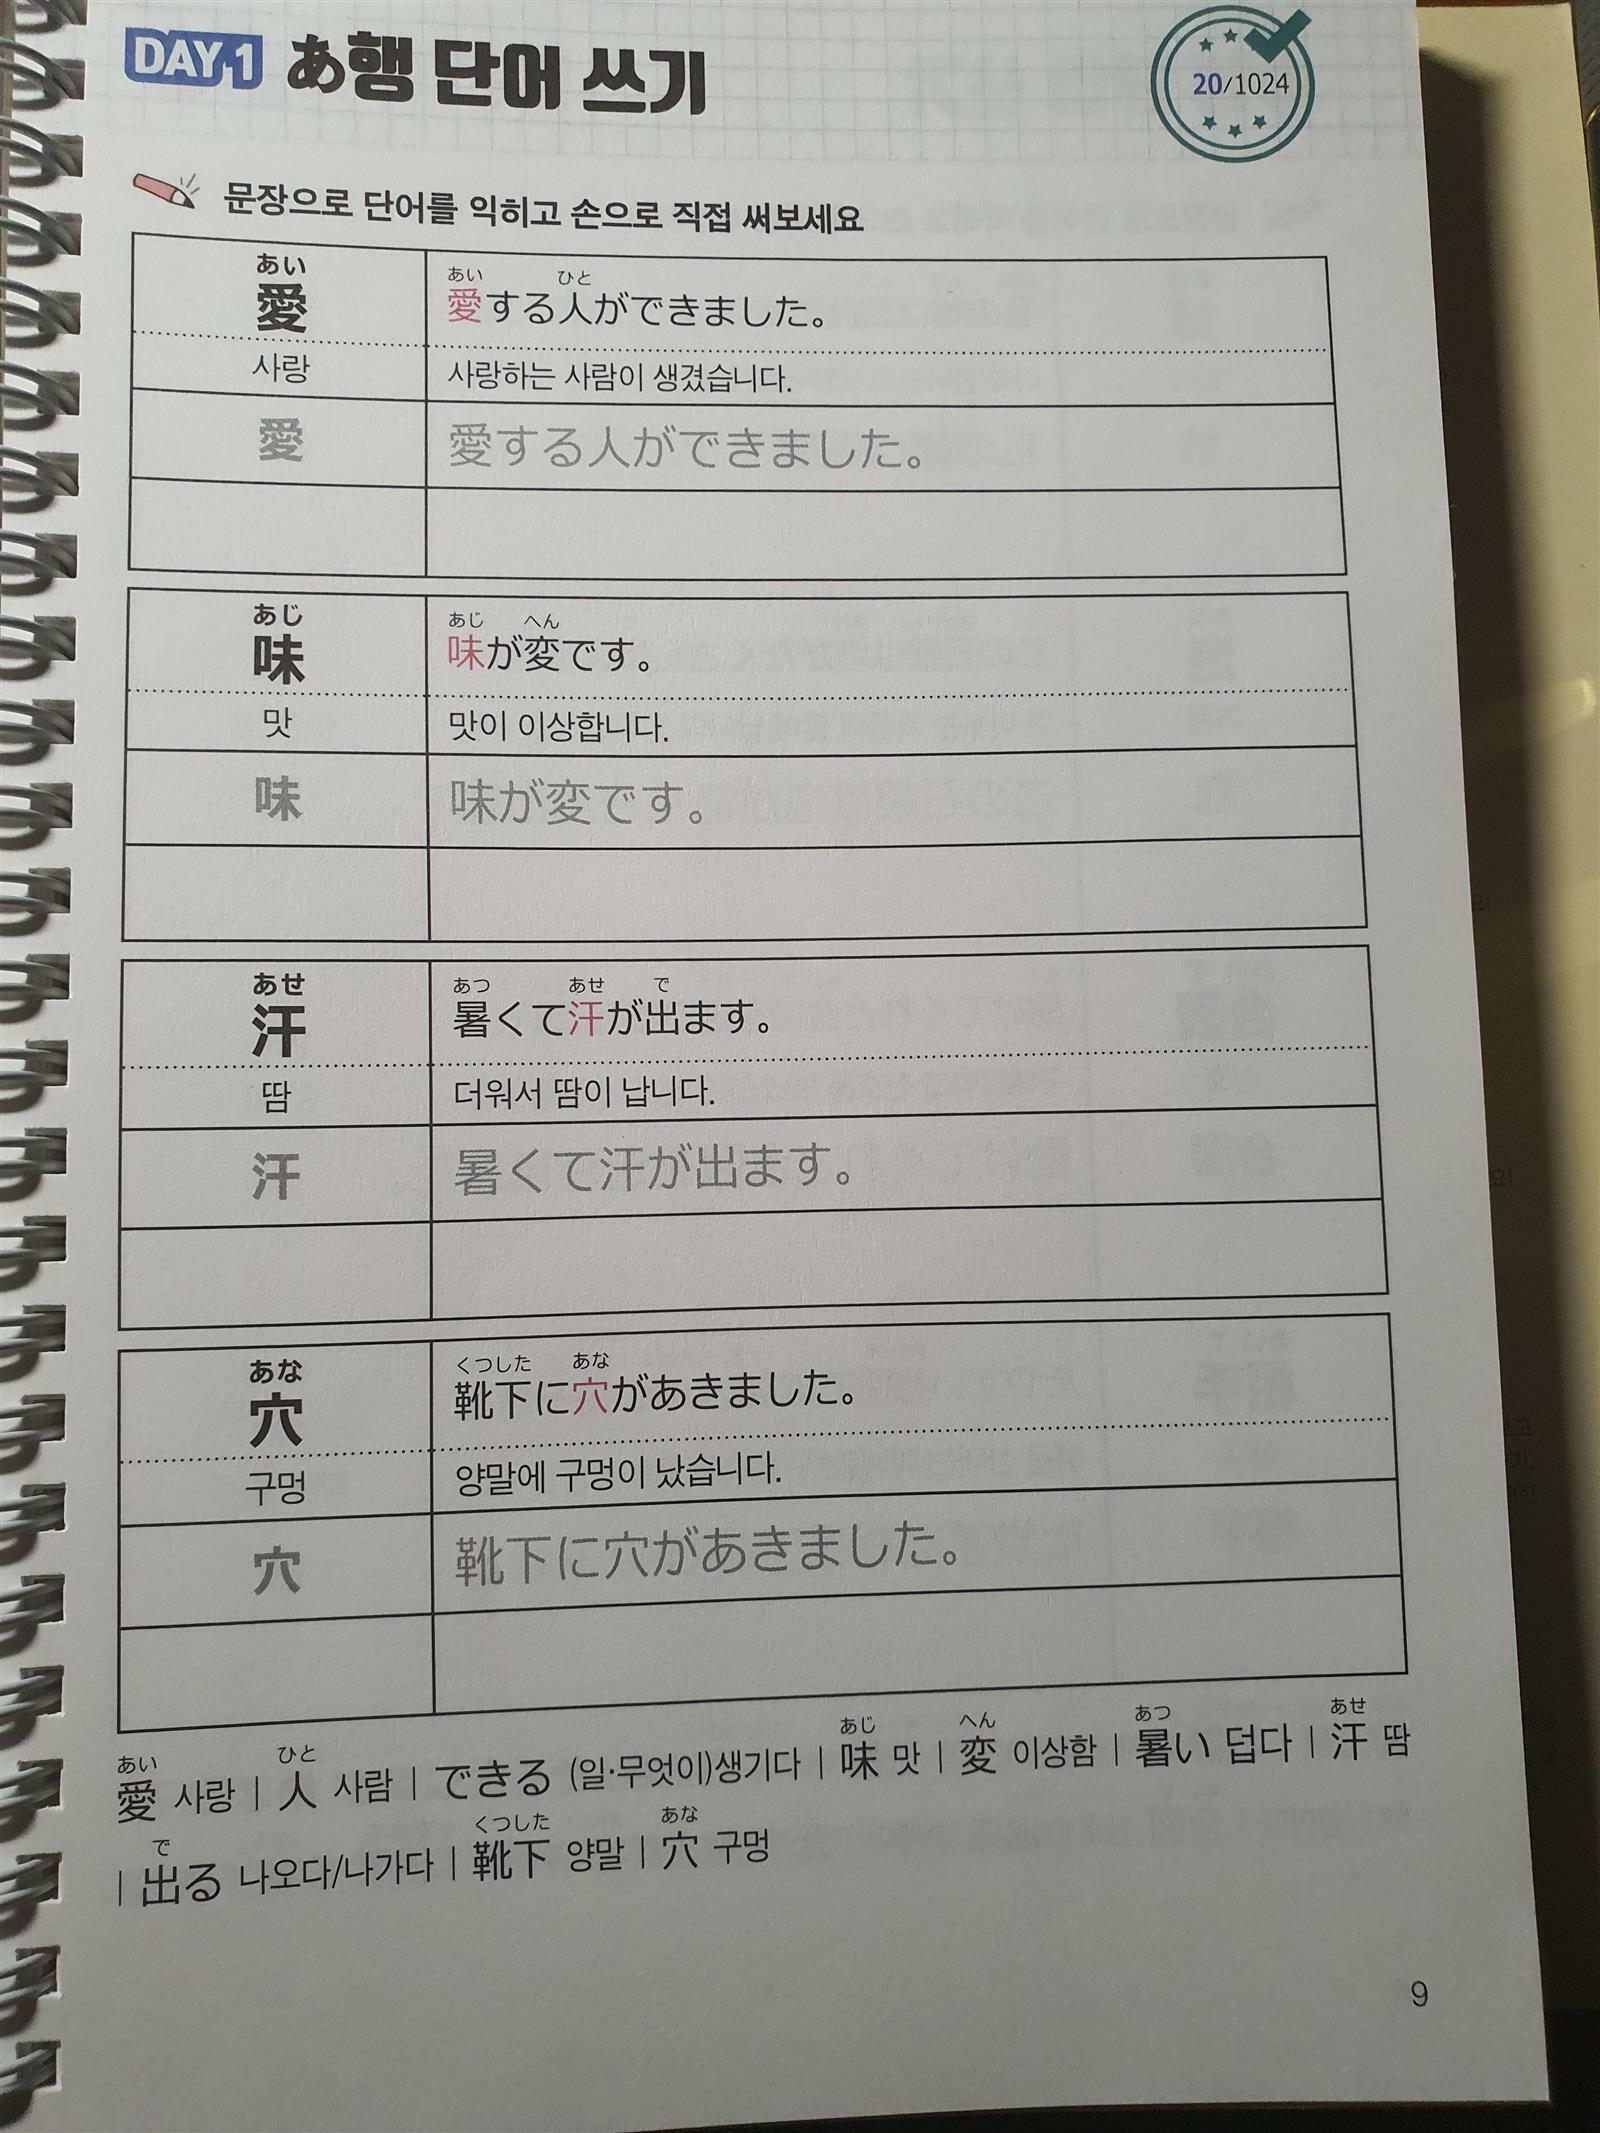 DAY 1 あ행 단어 쓰기
20/1024
문장으로 단어를 익히고 손으로 직접 써보세요
あい
愛
사랑
あい ひと
愛する人ができました。
사랑하는 사람이 생겼습니다.
愛
愛する人ができました。
あじ
味
맛
あじ へん
味が変です。
맛이 이상합니다.
味
味が変です。
あせ
汗
땀
あつ あせ で
暑くて汗が出ます。
더워서 땀이 납니다.
汗
暑くて汗が出ます。
あな
穴
구멍
くつした あな
靴下に穴があきました。
양말에 구멍이 났습니다.
穴
靴下に穴があきました。
あい ひと あじ へん あつ あせ
愛 사랑 | 人 사람 | できる (일·무엇이)생기다 | 味 맛 | 変 이상함 | 暑い 덥다 | 汗 땀
で くつした あな
| 出る 나오다/나가다 | 靴下 양말 | 穴 구멍
9